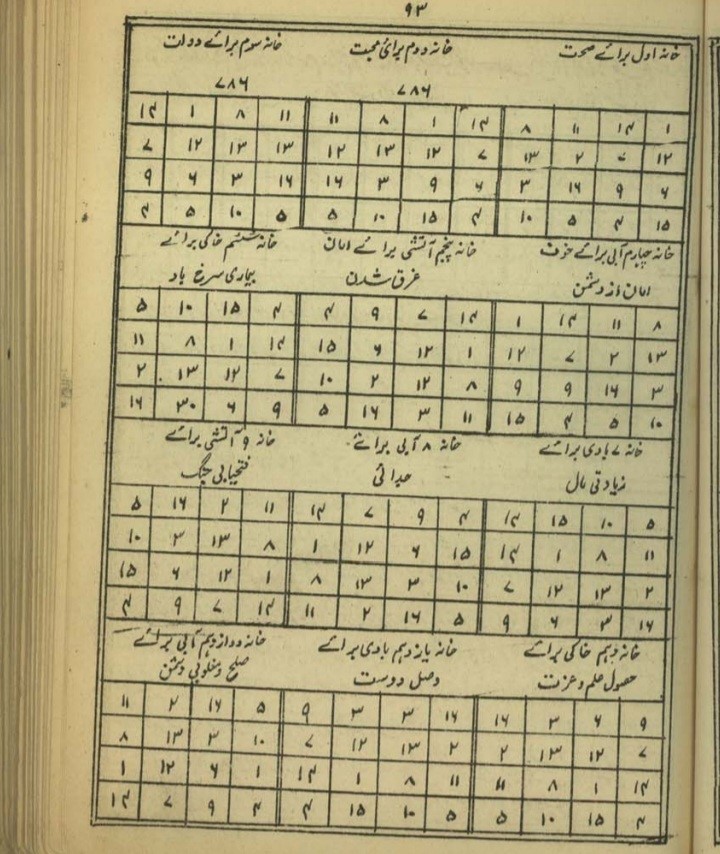 ۹۳
خانہ اول برائے صحت خانہ دوم برائے محبت خانہ سوم برائے دولت
۷۸۶ ۷۸۶
۱ ۱۴ ۱۱ ۸ ۱۴ ۱ ۸ ۱۱ ۱۱ ۸ ۱ ۱۴
۱۲ ۷ ۲ ۱۳ ۷ ۱۲ ۱۳ ۱۲ ۱۳ ۱۳ ۱۲ ۷
۶ ۹ ۱۶ ۳ ۶ ۹ ۳ ۱۶ ۱۶ ۳ ۶ ۹
۱۵ ۴ ۵ ۱۰ ۴ ۱۵ ۱۰ ۵ ۵ ۱۰ ۵ ۴
خانہ چہارم آبی برائے خوف خانہ پنجم آتشی برائے امان خانہ ششم خاکی برائے
امان از دشمن غرق شدن بیماری سرخ باد
۸ ۱۱ ۱۴ ۱ ۱۴ ۷ ۹ ۴ ۴ ۱۵ ۱۰ ۵
۱۳ ۲ ۷ ۱۲ ۱ ۱۲ ۶ ۱۵ ۱۴ ۱ ۸ ۱۱
۳ ۱۶ ۹ ۹ ۸ ۱۲ ۲ ۱۰ ۷ ۱۲ ۱۳ ۲
۱۰ ۵ ۴ ۱۵ ۱۱ ۳ ۱۶ ۵ ۹ ۶ ۳۰ ۱۶
خانہ ۷ بادی برائے خانہ ۸ آبی برائے خانہ ۹ آتشی برائے
زیادتی مال جدائی فتحیابی جنگ
۵ ۱۰ ۱۵ ۱۴ ۴ ۹ ۷ ۱۴ ۱۱ ۲ ۱۶ ۵
۱۱ ۸ ۱ ۱۴ ۱۵ ۶ ۱۲ ۱ ۸ ۱۳ ۳ ۱۰
۲ ۱۳ ۱۲ ۷ ۱۰ ۳ ۱۳ ۸ ۱ ۱۲ ۶ ۱۵
۱۶ ۳ ۶ ۹ ۵ ۱۶ ۲ ۱۱ ۱۴ ۷ ۹ ۴
خانہ دہم خاکی برائے خانہ یازدہم بادی برائے خانہ دوازدہم آبی برائے
حصول علم و عزت وصل دوست صلح و مغلوبی دشمن
۹ ۶ ۳ ۱۶ ۱۶ ۳ ۳ ۹ ۵ ۱۶ ۲ ۱۱
۷ ۱۲ ۱۳ ۲ ۲ ۱۳ ۱۲ ۷ ۱۰ ۳ ۱۳ ۸
۱۴ ۱ ۸ ۱۱ ۱۱ ۸ ۱ ۱۴ ۱ ۶ ۱۲ ۱
۴ ۱۵ ۱۰ ۵ ۵ ۱۰ ۱۵ ۴ ۴ ۹ ۷ ۱۴